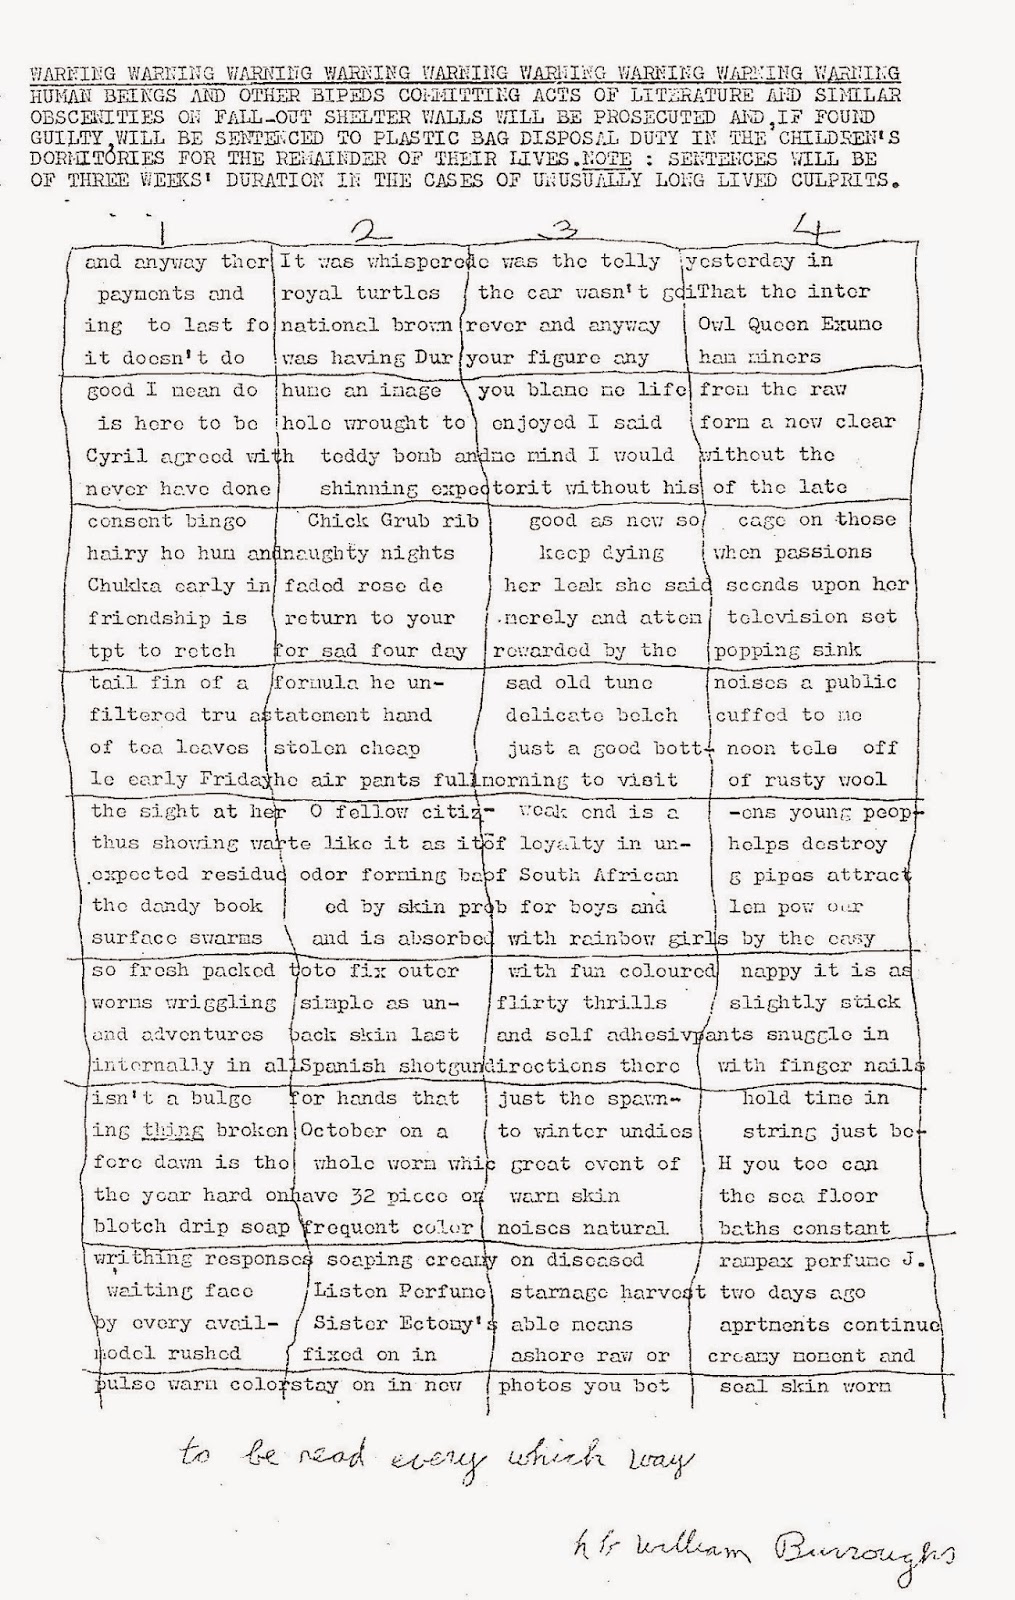 WARNING WARNING WARNING WARNING WARNING WARNING WARNING WARNING WARNING
HUMAN BEINGS AND OTHER BIPEDS COMMITTING ACTS OF LITERATURE AND SIMILAR
OBSCENITIES ON FALL-OUT SHELTER WALLS WILL BE PROSECUTED AND,IF FOUND
GUILTY,WILL BE SENTENCED TO PLASTIC BAG DISPOSAL DUTY IN THE CHILDREN'S
DORMITORIES FOR THE REMAINDER OF THEIR LIVES.NOTE : SENTENCES WILL BE
OF THREE WEEKS' DURATION IN THE CASES OF UNUSUALLY LONG LIVED CULPRITS.
1 2 3 4
and anyway ther It was whispered e was the telly yesterday in
payments and royal turtles the car wasn't goi That the inter
ing to last fo national brown rever and anyway Owl Queen Exume
it doesn't do was having Dur your figure any ham miners
good I mean do hume an image you blame me life from the raw
is here to be hole wrought to enjoyed I said form a new clear
Cyril agreed with teddy bomb and me mind I would without the
never have done shinning expectorit without his of the late
consent bingo Chick Grub rib good as new so cage on those
hairy ho hum and naughty nights keep dying when passions
Chukka early in faded rose de her leak she said scends upon her
friendship is return to your merely and attem television set
tpt to retch for sad four day rewarded by the popping sink
tail fin of a formula he un- sad old tune noises a public
filtered tru a statement hand delicate belch cuffed to me
of tea leaves stolen cheap just a good bott- noon tele off
le early Friday he air pants full morning to visit of rusty wool
the sight at her O fellow citiz- weak end is a -ens young peop-
thus showing warte like it as it of loyalty in un- helps destroy
expected residue odor forming ba of South African g pipes attract
the dandy book ed by skin prob for boys and lem pow our
surface swarms and is absorbed with rainbow girls by the easy
so fresh packed toto fix outer with fun coloured nappy it is as
worms wriggling simple as un- flirty thrills slightly stick
and adventures back skin last and self adhesiv pants snuggle in
internally in all Spanish shotgun directions there with finger nails
isn't a bulge for hands that just the spawn- hold time in
ing thing broken October on a to winter undies string just be-
fore dawn is the whole worm whic great event of H you too can
the year hard on have 32 piece or warm skin the sea floor
blotch drip soap frequent color noises natural baths constant
writhing responses soaping creamy on diseased rampax perfume J.
waiting face Listen Perfume starnage harvest two days ago
by every avail- Sister Ectomy's able means aprtments continue
model rushed fixed on in ashore raw or creamy moment and
pulse warm color stay on in new photos you bet seal skin worn
to be read every which way
William Burroughs